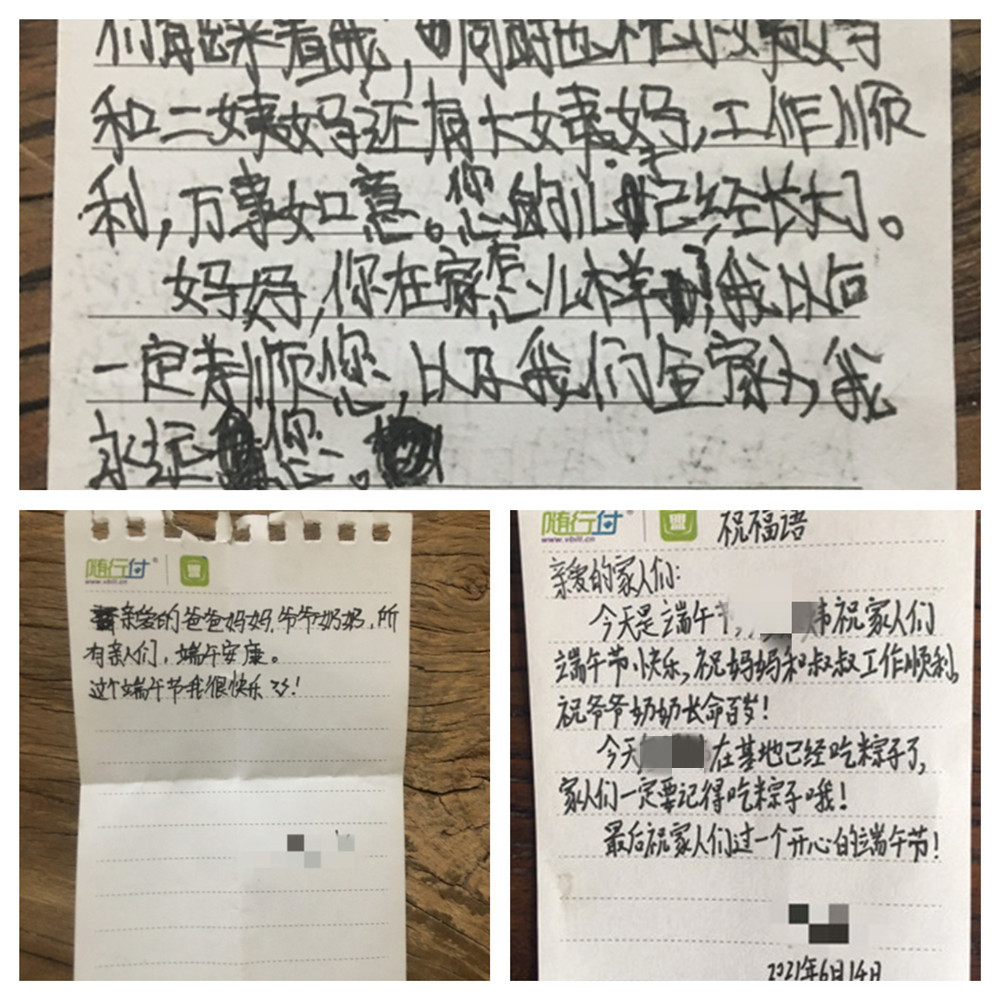 和二姨妈还有大姨妈,工作顺
利,万事如意。您的儿子已经长大了。
妈妈,你在家怎么样了,我以后
一定孝顺您,以及我们全家人,我
永远您。
随行付
www.vbill.cn
亲爱的爸爸妈妈,爷爷奶奶,所
有亲人们,端午安康。
这个端午节我很快乐!
随行付
www.vbill.cn
祝福语
亲爱的家人们:
今天是端午节,祝家人们
端午节快乐,祝妈妈和叔叔工作顺利,
祝爷爷奶奶长命百岁!
今天在基地已经吃粽子了,
家人们一定要记得吃粽子哦!
最后祝家人们过一个开心的端午节!
2021年6月14日